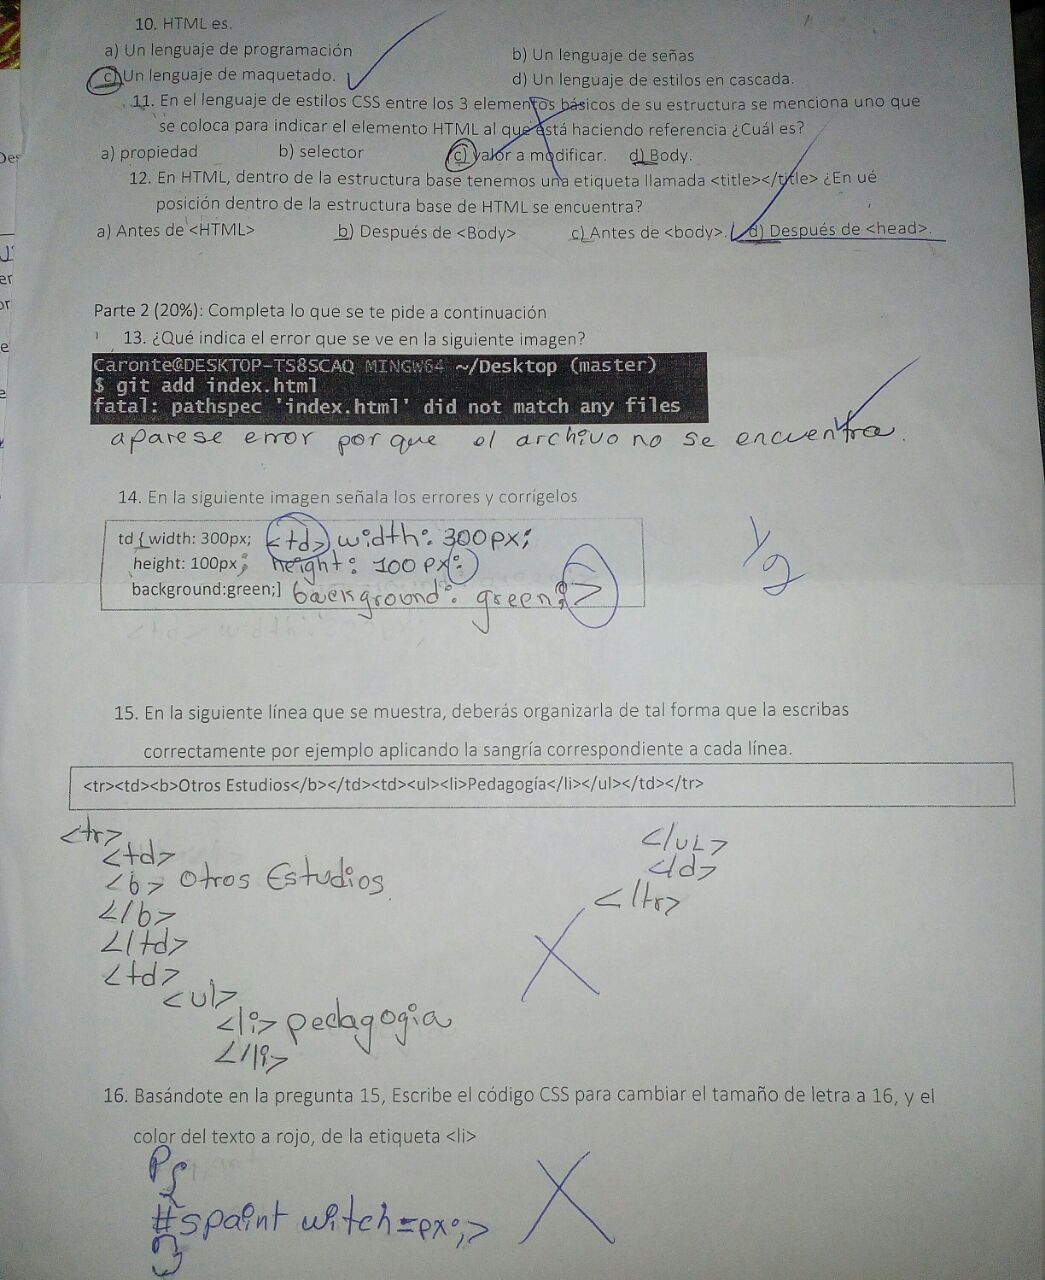 10. HTML es.
a) Un lenguaje de programación
b) Un lenguaje de señas
c) Un lenguaje de maquetado.
d) Un lenguaje de estilos en cascada.
11. En el lenguaje de estilos CSS entre los 3 elementos básicos de su estructura se menciona uno que
se coloca para indicar el elemento HTML al que está haciendo referencia ¿Cuál es?
a) propiedad b) selector c) valor a modificar. d) Body.
12. En HTML, dentro de la estructura base tenemos una etiqueta llamada <title></title> ¿En ué
posición dentro de la estructura base de HTML se encuentra?
a) Antes de <HTML> b) Después de <Body> c) Antes de <body>. d) Después de <head>.
Parte 2 (20%): Completa lo que se te pide a continuación
13. ¿Qué indica el error que se ve en la siguiente imagen?
Caronte@DESKTOP-TS8SCAQ MINGW64 ~/Desktop (master)
$ git add index.html
fatal: pathspec 'index.html' did not match any files
aparese error por que el archivo no se encuentra.
14. En la siguiente imagen señala los errores y corrígelos
td { width: 300px; <td> width: 300px;
height: 100px; height: 100 px;
background:green;] background: green; >
1/2
15. En la siguiente línea que se muestra, deberás organizarla de tal forma que la escribas
correctamente por ejemplo aplicando la sangría correspondiente a cada línea.
<tr><td><b>Otros Estudios</b></td><td><ul><li>Pedagogía</li></ul></td></tr>
<tr>
<td>
<b> Otros Estudios
</b>
</td>
<td>
<ul>
<li> pedagogia
</li>
</uL>
</d>
</tr>
16. Basándote en la pregunta 15, Escribe el código CSS para cambiar el tamaño de letra a 16, y el
color del texto a rojo, de la etiqueta <li>
P{
#spaint witch=px;>